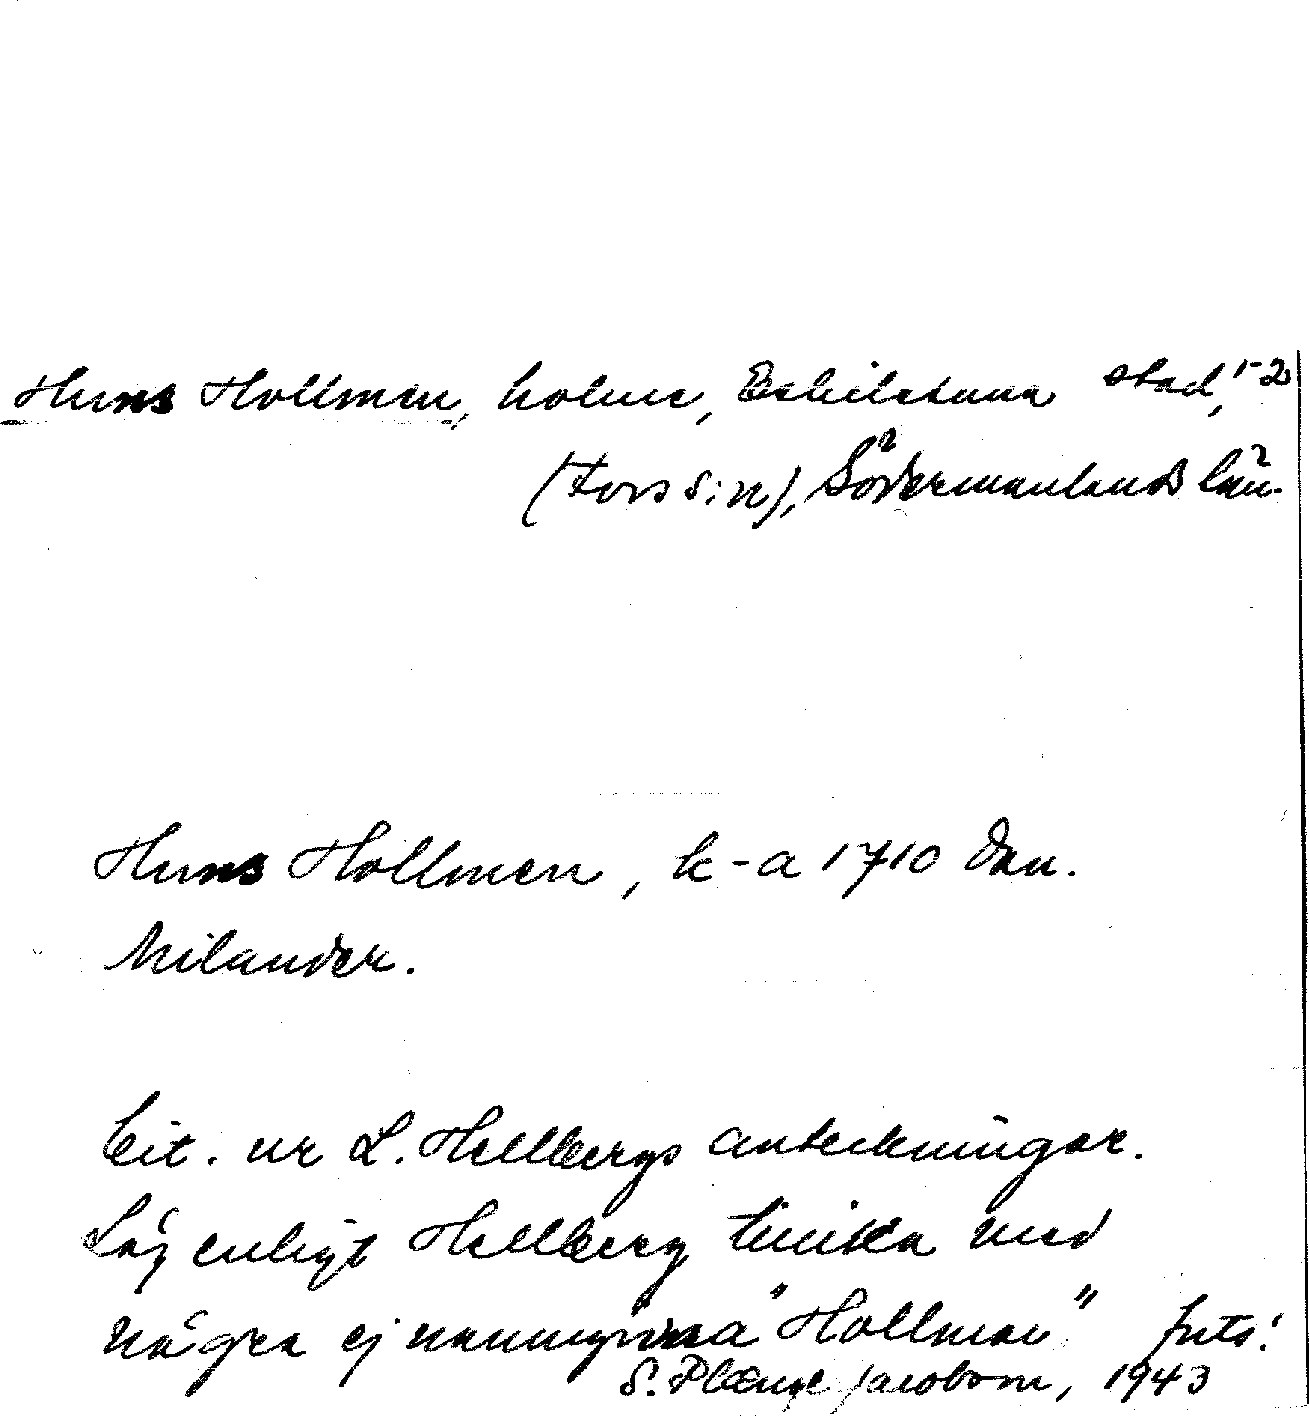 Huns Hollmen, holme, Eskilstuna stad, 1-2
(Fors s:n), Södermanlands län.
Huns Hollmen, k-a 1710 Dan.
Milander.
Cit. ur L. Hellbergs anteckningar.
Låg enligt Hellberg tillika med
några ej namngivna "Hollmar"
S. Plænge Jacobson, 1943